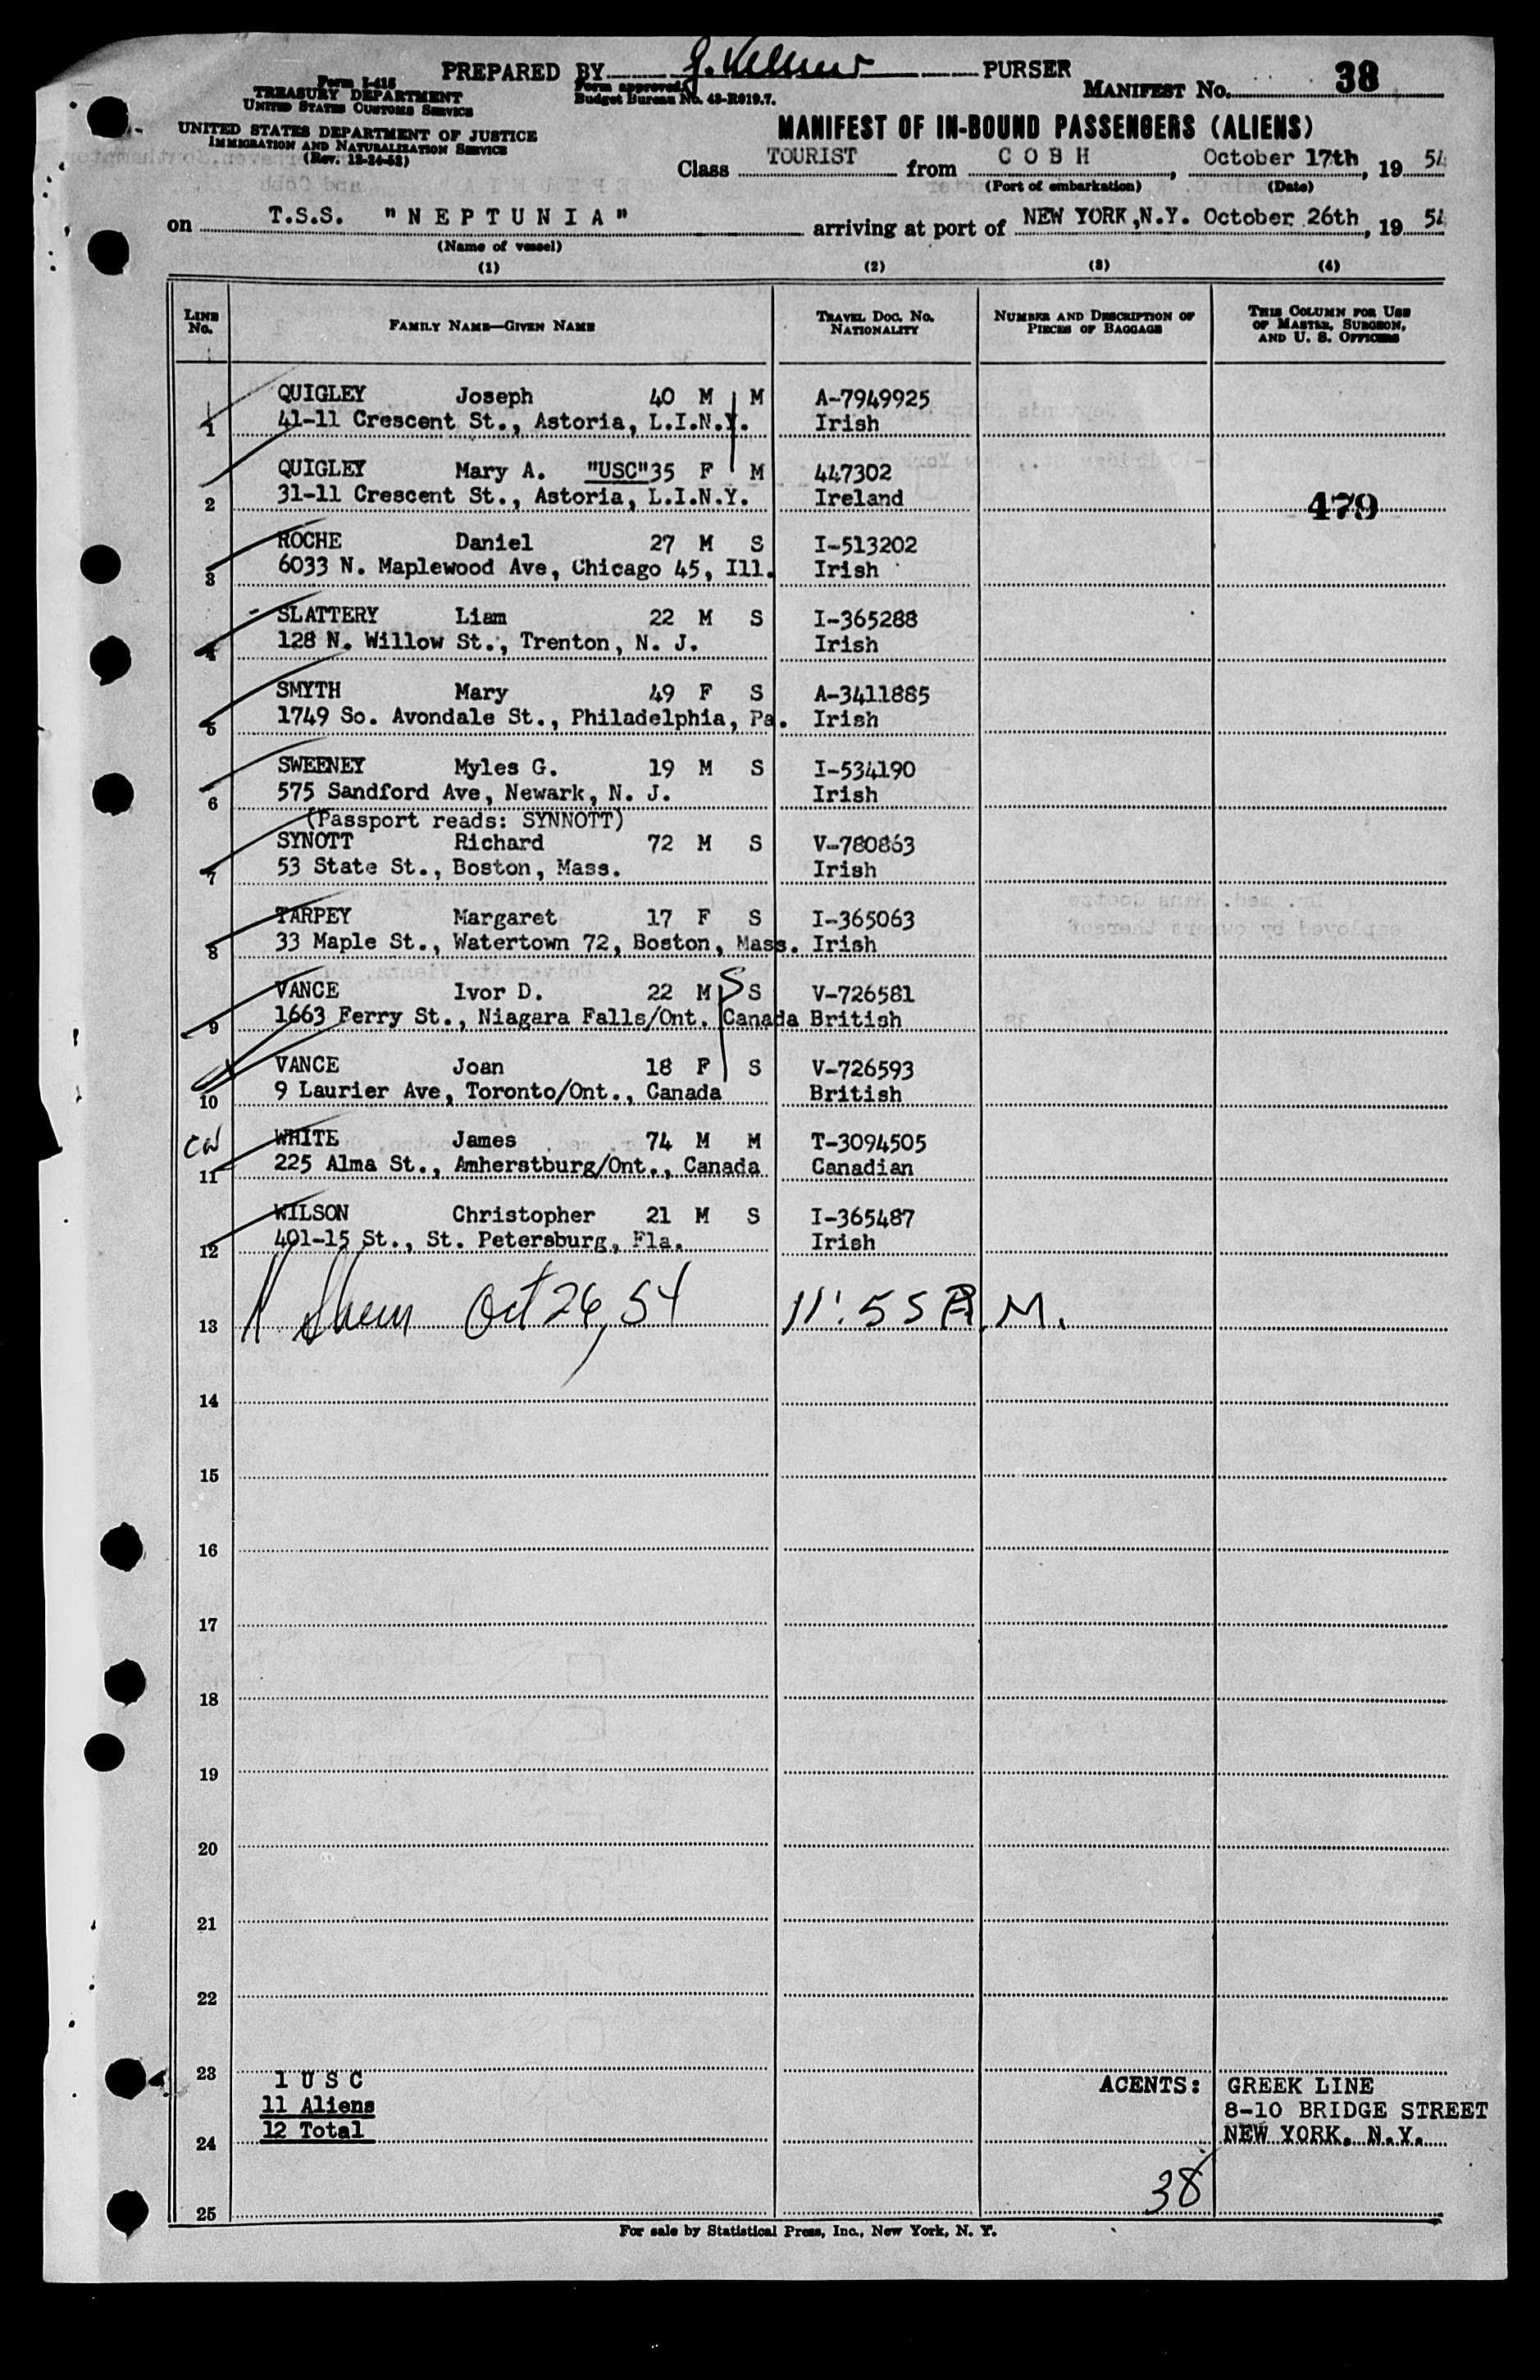 PREPARED BY PURSER
Form I-415
TREASURY DEPARTMENT
UNITED STATES CUSTOMS SERVICE
Form approved.
Budget Bureau No. 43-R019.7.
MANIFEST No. 38
UNITED STATES DEPARTMENT OF JUSTICE
IMMIGRATION AND NATURALIZATION SERVICE
(Rev. 12-24-52)
MANIFEST OF IN-BOUND PASSENGERS (ALIENS)
Class TOURIST from COBH, October 17th, 1954
(Port of embarkation) (Date)
on T.S.S. "NEPTUNIA" arriving at port of NEW YORK, N.Y. October 26th, 1954
(Name of vessel)
(1) (2) (3) (4)
LINE No. FAMILY NAME—GIVEN NAME TRAVEL DOC. No. NATIONALITY NUMBER AND DESCRIPTION OF PIECES OF BAGGAGE THIS COLUMN FOR USE OF MASTER, SURGEON, AND U. S. OFFICERS
QUIGLEY Joseph 40 M M A-7949925
1 41-11 Crescent St., Astoria, L.I.N.Y. Irish
QUIGLEY Mary A. "USC" 35 F M 447302
2 31-11 Crescent St., Astoria, L.I.N.Y. Ireland 479
ROCHE Daniel 27 M S I-513202
3 6033 N. Maplewood Ave, Chicago 45, Ill. Irish
SLATTERY Liam 22 M S I-365288
4 128 N. Willow St., Trenton, N. J. Irish
SMYTH Mary 49 F S A-3411885
5 1749 So. Avondale St., Philadelphia, Pa. Irish
SWEENEY Myles G. 19 M S I-534190
6 575 Sandford Ave, Newark, N. J. Irish
(Passport reads: SYNNOTT)
SYNOTT Richard 72 M S V-780863
7 53 State St., Boston, Mass. Irish
TARPEY Margaret 17 F S I-365063
8 33 Maple St., Watertown 72, Boston, Mass. Irish
VANCE Ivor D. 22 M S S V-726581
9 1663 Ferry St., Niagara Falls/Ont. Canada British
VANCE Joan 18 F S V-726593
10 9 Laurier Ave, Toronto/Ont., Canada British
CW WHITE James 74 M M T-3094505
11 225 Alma St., Amherstburg/Ont., Canada Canadian
WILSON Christopher 21 M S I-365487
12 401-15 St., St. Petersburg, Fla. Irish
13 Oct 26, 54 11:55 A.M.
14
15
16
17
18
19
20
21
22
23
1 USC AGENTS: GREEK LINE
11 Aliens 8-10 BRIDGE STREET
24 12 Total NEW YORK, N.Y.
38
25
For sale by Statistical Press, Inc., New York, N. Y.